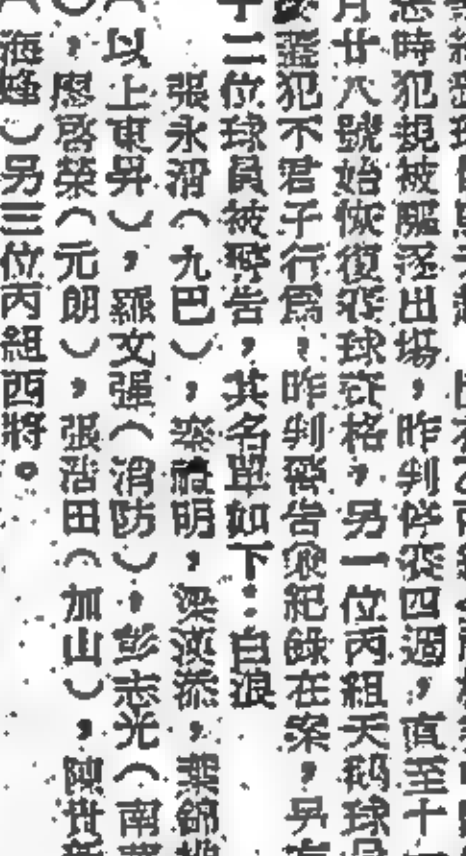 悉時犯規被驅逐出場，昨判停賽四週，直至十
月廿八號始恢復賽球資格，另一位丙組天鵝球
犯不君子行為，昨判警告兼紀錄在案，另
十二位球員被警告，其名單如下：白浪
張永滑（九巴），明，梁漢添，葉錦
以上東昇），羅文強（消防），彭志光（南
），廖啓榮（元朗），張活田（加山），陳世
（海蜂）另三位丙組西將。